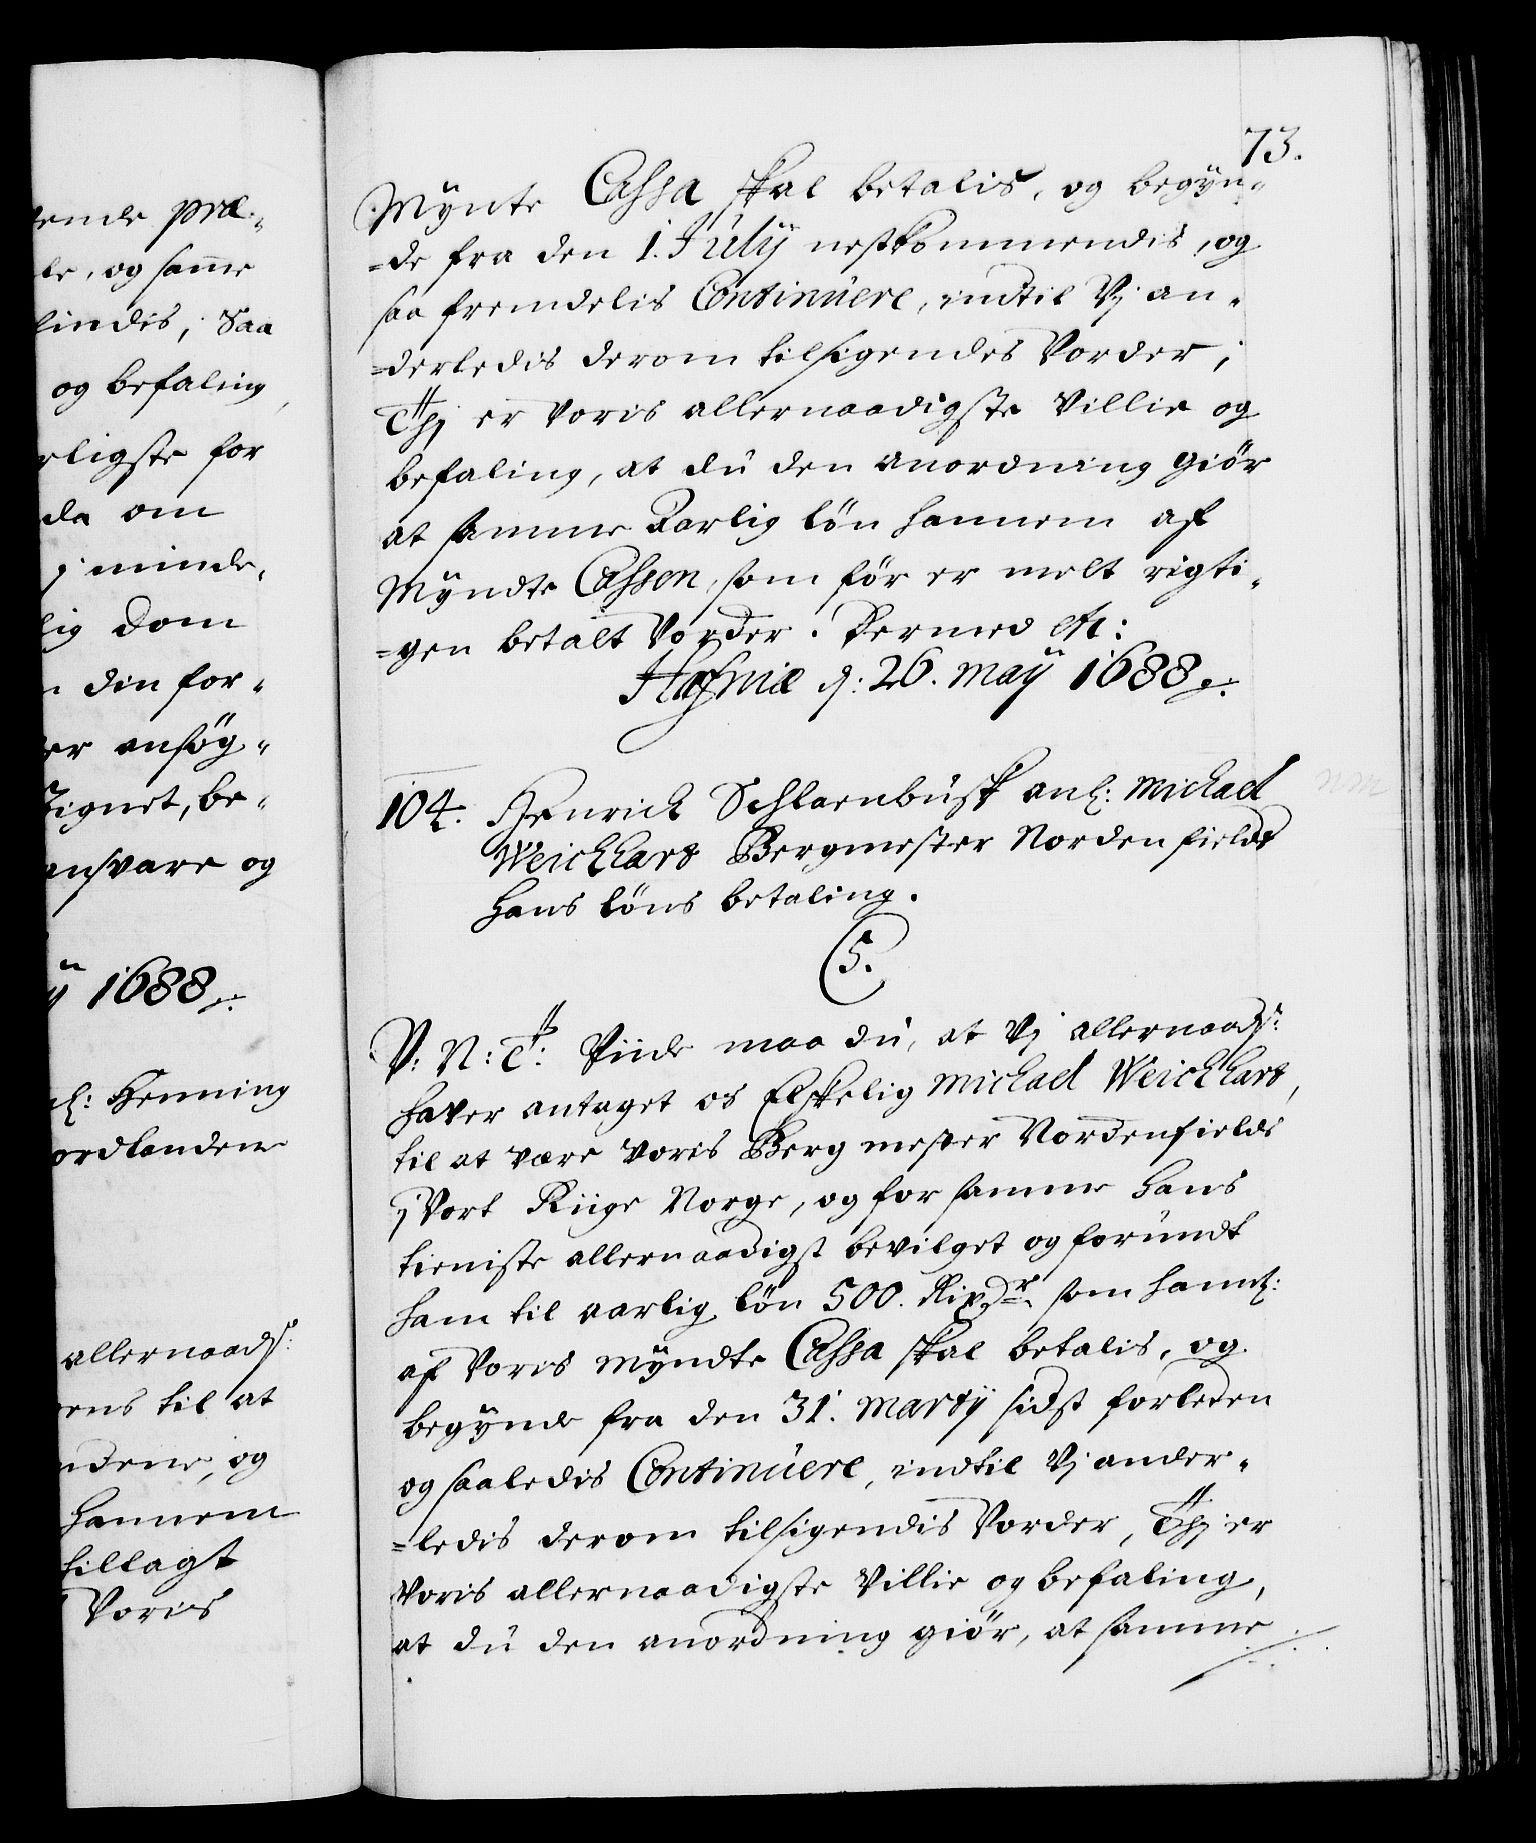 ende præ-
le, og same
lindis, Saa
og befaling,
rligste for
da om
j minde,
lig Dom
din for-
er ansøg-
Zignet, be-
ansvare og
ÿ 1688 ./.
l: Henning
ordlandene
allernaadst:
ens til at
ndene, og
hannem
tillagt
Voris
73.
Mynte Cassa skal betalis, og begÿn-
=de fra den 1. Julÿ nestkommendis, og
saa fremdelis Continuere, indtil Vj an-
=derledis derom tilsigendes Vorder;
Thj er Voris allernaadigste Villie og
befaling, at du den anordning giör
at samme Aarlig lön hannem af
Myndte Cassen, som för er melt rigti-
=gen betalt Vorder. Dermed etc:
Hafniæ d: 26. maÿ 1688 ./.
104. Henrick Schlaenbusk anl: Michael
Weichhart Bergmester Nordenfields
hans löns betaling.
C5.
V: N: T: Viide maa du, at Vj allernaadst:
haver antaget os Elskelig Michael Weichhart,
til at være Voris Berg mester Nordenfields
j Vort Riige Norge, og for samme hans
tieniste allernaadigst bevilget og forundt
ham til aarlig lön 500. Rixdr. som hanl:
af Voris Myndte Cassa skal betalis, og
begÿnde fra den 31. Martÿ sidst forleden
og saaledis Continuere, indtil Vj ander-
=ledis derom tilsigendis Vorder, Thj er
Voris allernaadigste Villie og befaling,
at du den anordning giör, at samme
./.